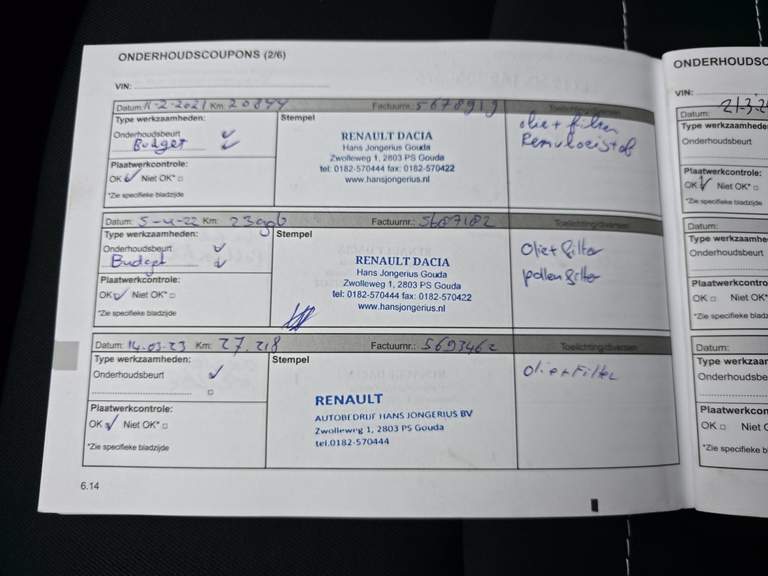 ONDERHOUDSCOUPONS (2/6)
VIN:
Datum: 11-2-2021 Km: 20844 Factuurnr.: 5678919
Type werkzaamheden:
Onderhoudsbeurt
Budget
Plaatwerkcontrole:
OK Niet OK*
*Zie specifieke bladzijde
Stempel
RENAULT DACIA
Hans Jongerius Gouda
Zwolleweg 1, 2803 PS Gouda
tel: 0182-570444 fax: 0182-570422
www.hansjongerius.nl
olie + filter
Remvloeistof
Datum: 5-4-22 Km: Factuurnr.: 5687182
Type werkzaamheden:
Onderhoudsbeurt
Budget
Plaatwerkcontrole:
OK Niet OK*
*Zie specifieke bladzijde
Stempel
RENAULT DACIA
Hans Jongerius Gouda
Zwolleweg 1, 2803 PS Gouda
tel: 0182-570444 fax: 0182-570422
www.hansjongerius.nl
Olie + filter
pollenfilter
Datum: 14-03-23 Km: 27.218 Factuurnr.: 5693462
Toelichting/diversen
Type werkzaamheden:
Onderhoudsbeurt
Plaatwerkcontrole:
OK Niet OK*
*Zie specifieke bladzijde
Stempel
RENAULT
AUTOBEDRIJF HANS JONGERIUS BV
Zwolleweg 1, 2803 PS Gouda
tel.0182-570444
Olie + Filter
6.14
ONDERHOUDSC
VIN:
Datum: 21-3-2
Type werkzaamhede
Onderhoudsbeurt
Plaatwerkcontrole:
OK Niet OK*
*Zie specifieke bladzijde
Datum:
Type werkzaamhe
Onderhoudsbeurt
Plaatwerkcontro
OK Niet OK*
*Zie specifieke bla
Datum:
Type werkzaar
Onderhoudsbe
Plaatwerkcon
OK Niet O
*Zie specifieke b